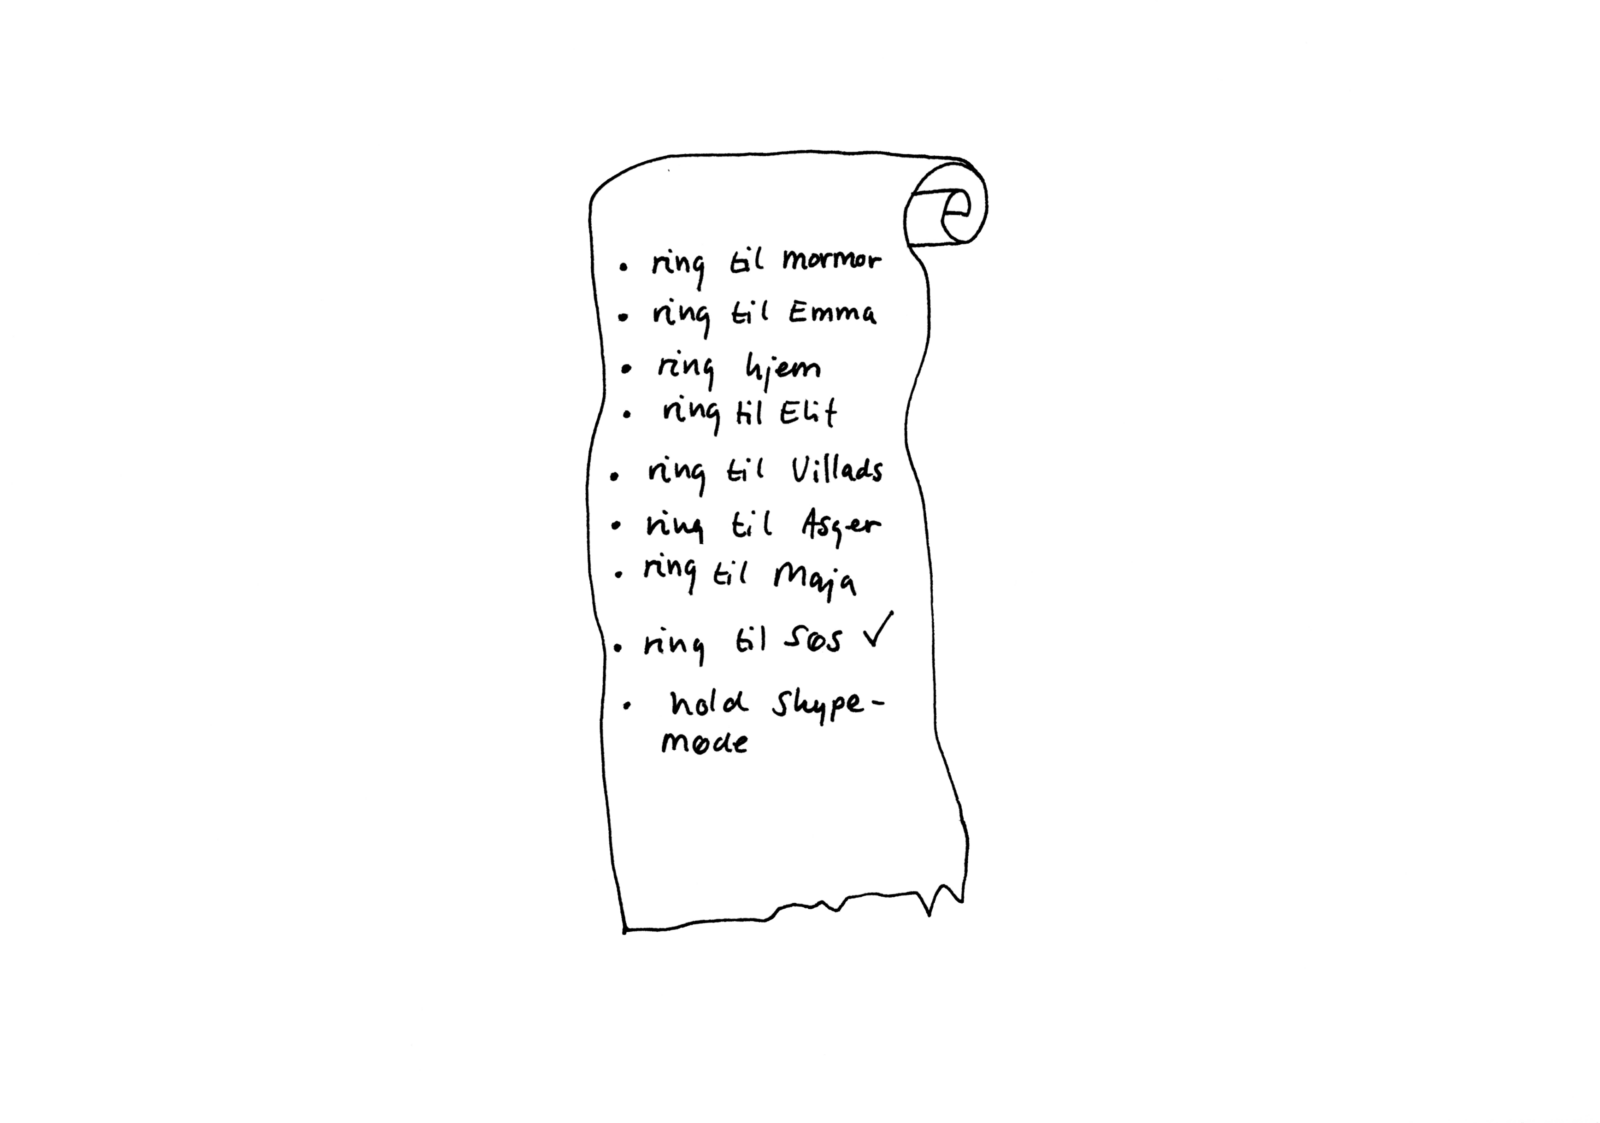 • ring til mormor
• ring til Emma
• ring hjem
• ring til Elif
• ring til Villads
• ring til Asger
• ring til Maja
• ring til SOS ✓
• hold Skype-
møde